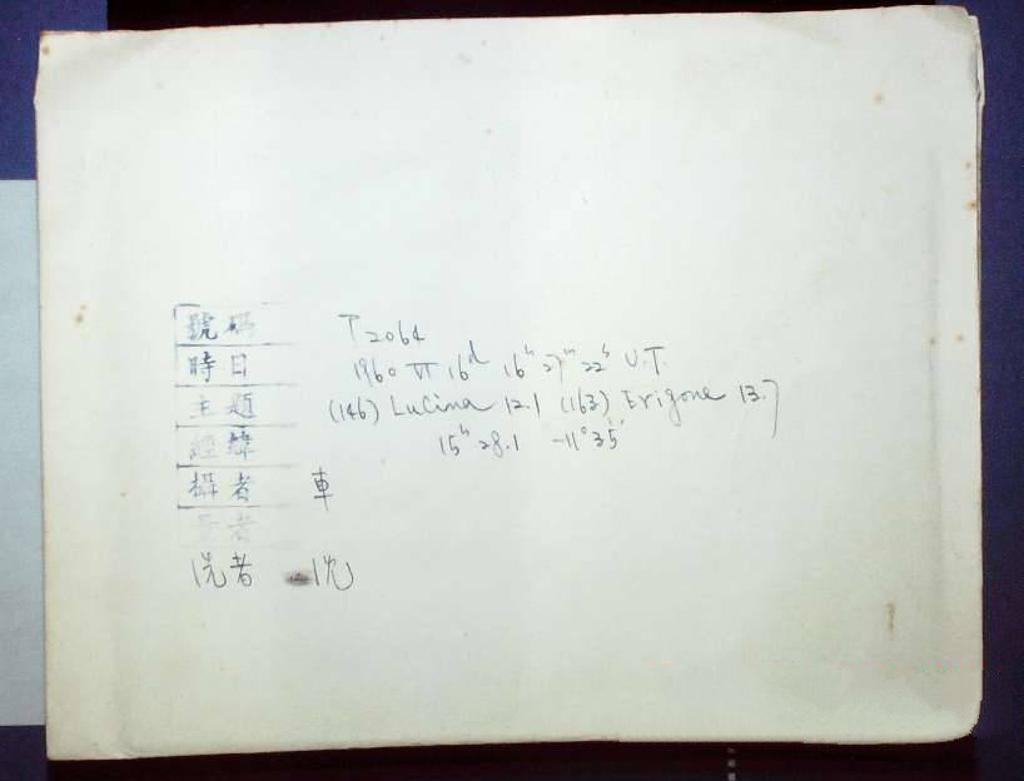 號碼 T2064
時日 1960 VI 16ᵈ 16ʰ 27ᵐ 22ˢ U.T.
主題 (146) Lucina 12.1 (163) Erigone 13.7
經緯 15ʰ 28.1 -11°35'
攝者 車
者
洗者 沈